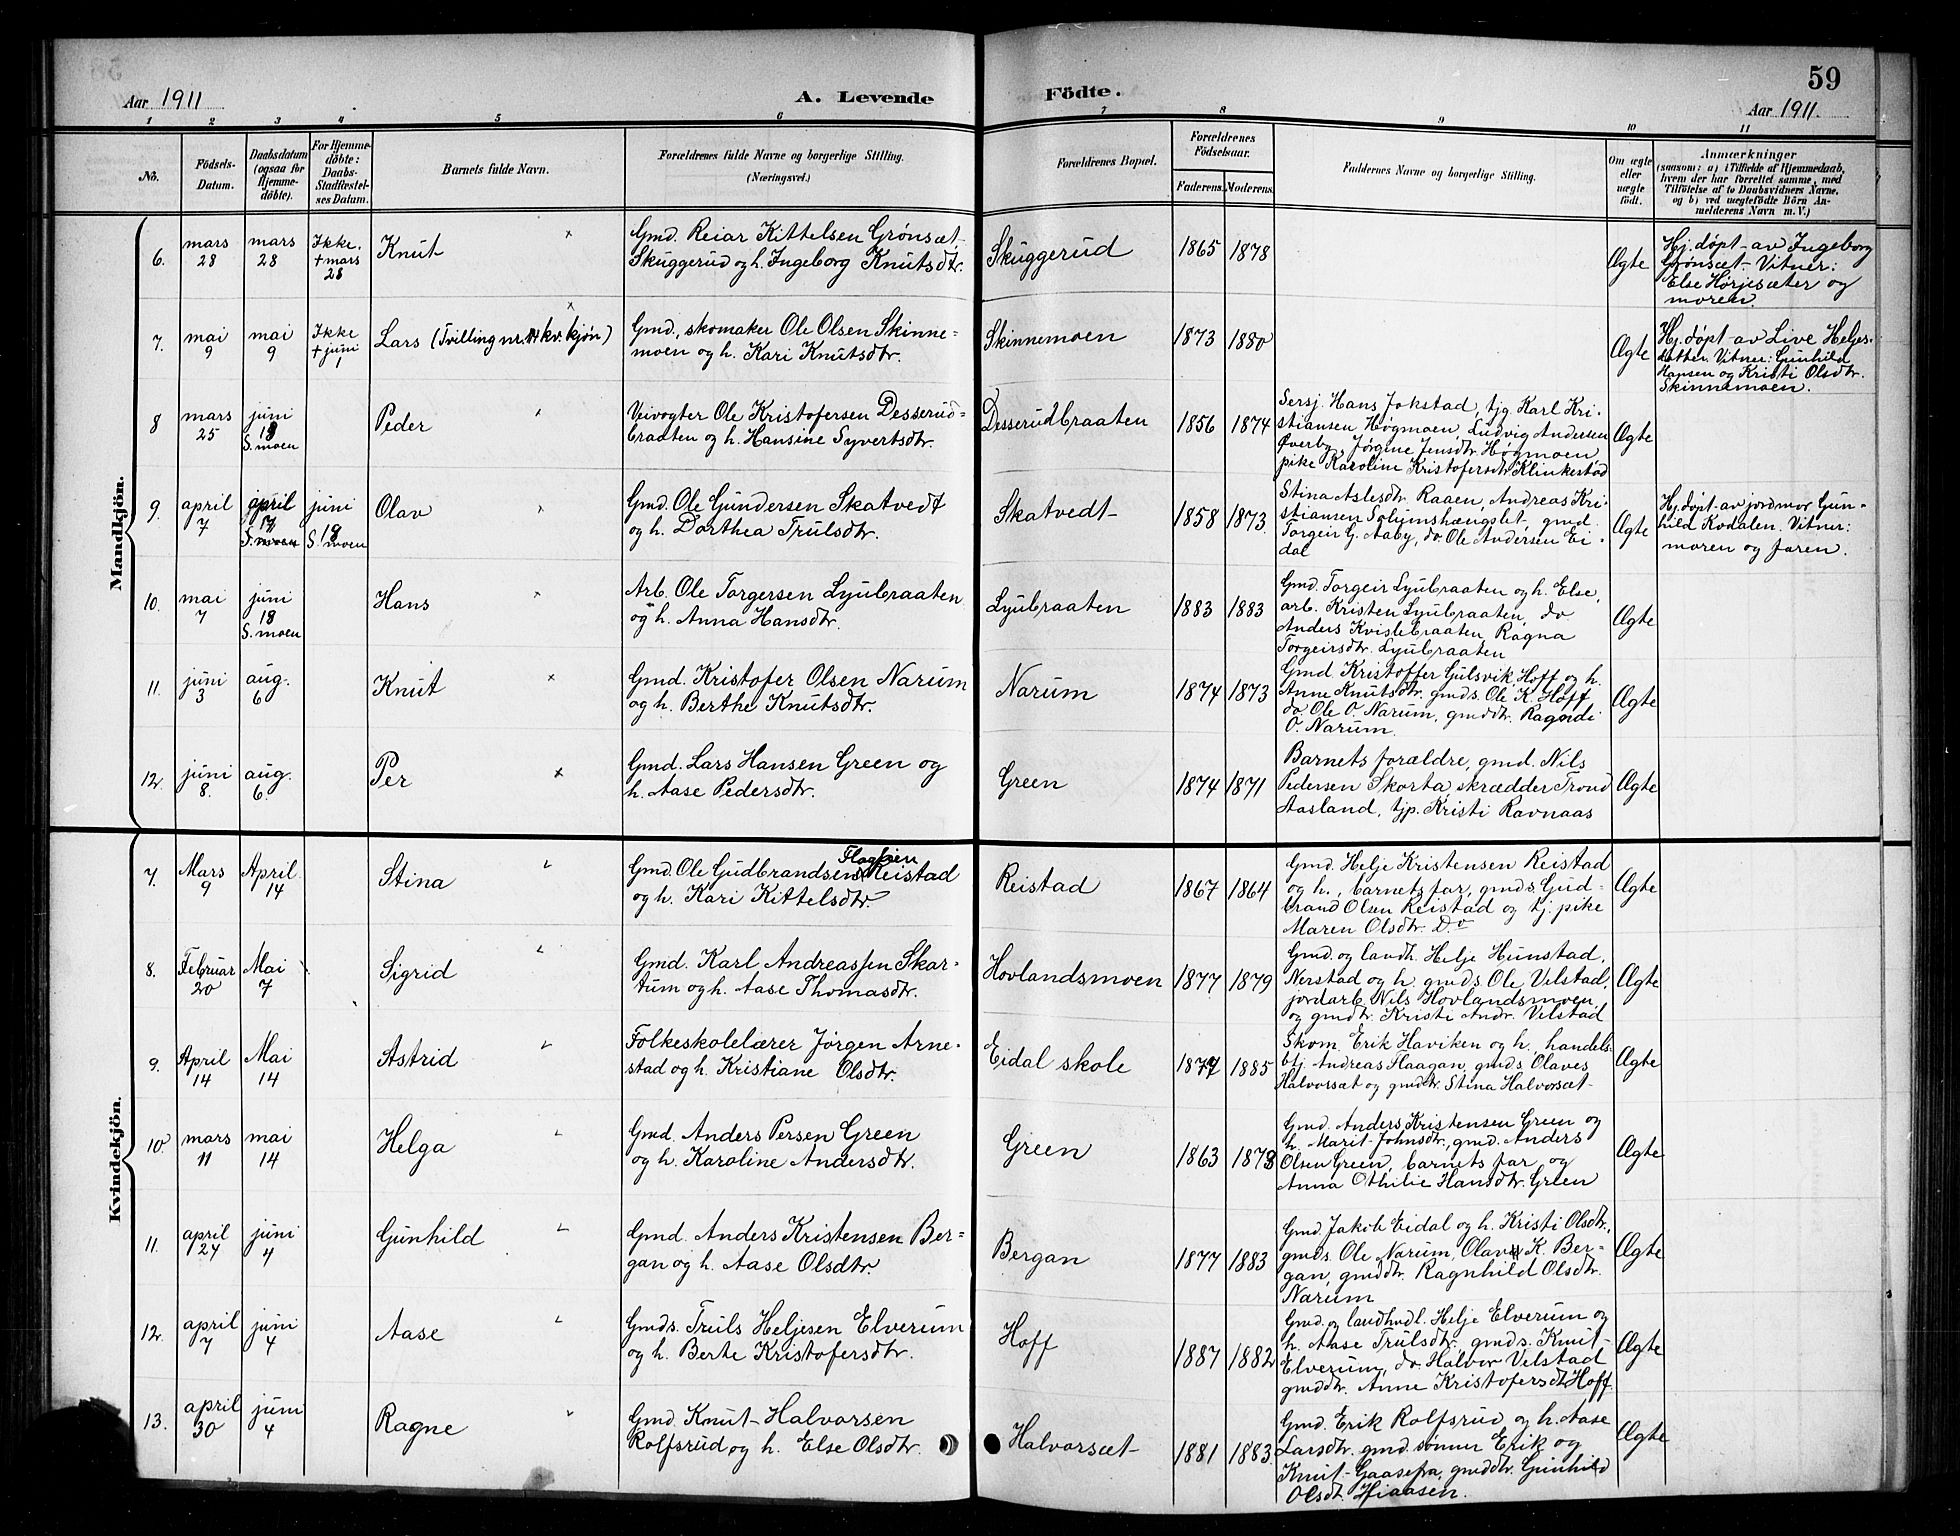 59
Aar 1911
A. Levende
Födte.
Aar 1911.
1 2 3 4 5 6 7 8 9 10 11
No.
Födsels-
Datum.
Daabsdatum
(ogsaa for
Hjemme-
döbte).
For Hjemme-
döbte:
Daabs-
Stadfæstel-
ses Datum.
Barnets fulde Navn.
Forældrenes fulde Navne og borgerlige Stilling.
(Næringsvei.)
Forældrenes Bopæl.
Forældrenes
Födselsaar.
Faderens.
Moderens.
Faddernes Navne og borgerlige Stilling.
Om ægte
eller
uægte
født.
Anmærkninger
(saasom: a) i Tilfælde af Hjemmedaab,
hvem der har forrettet samme, med
Tilföielse af to Daabsvidners Navne,
og b) ved uægtefödte Börn An-
melderens Navn m. V.)
Mandkjön.
6.
mars
28
mars
28
Ikke.
+ mars
28
Knut
Gmd. Reiar Kittelsen Grønsæt-
Skuggerud og h. Ingeborg Knutsdtr.
Skuggerud
1865
1878
Ægte
Hj. døpt av Ingeborg
Grønsæt. Vitner:
Else Hørjesæter og
moren.
7.
mai
9
mai
9
Ikke
+ juni
1
Lars (Tvilling nr. 14 kv. kjøn)
Gmd., skomaker Ole Olsen Skinne-
moen og h. Kari Knutsdtr.
Skinnemoen
1873
1880
Ægte
Hj. døpt av Live Heljes-
datter. Vitner: Gunhild
Hansen og Kristi Olsdtr.
Skinnemoen.
8
mars
25
juni
18
S. moen
Peder
Veivogter Ole Kristofersen Desserud-
braaten og h. Hansine Syvertsdtr.
Desserudbraaten
1856
1874
Sersj. Hans Jokstad, tjg. Karl Kri-
stiansen Høgmoen, Ludvig Andersen
Øverby, Jørgine Jensdtr. Høgmoen,
pike Karoline Kristofersdtr. Klinkestad
Ægte
9.
april
7
april
17
S. moen
juni
18
S. moen
Olav
Gmd. Ole Gundersen Skatvedt
og h. Dorthea Trulsdtr.
Skatvedt
1858
1873.
Stina Aslesdtr. Raaen, Andreas Kri-
stiansen Solumshængslet, gmd.
Torgeir G. Aaby, do. Ole Andersen Ei-
dal
Ægte
Hj. døpt av jordmor Gun-
hild Kodalen. Vitner:
moren og faren.
10.
mai
7
juni
18
S. moen
Hans
Arb. Ole Torgersen Lyubraaten
og h. Anna Hansdtr.
Lyubraaten
1883
1883
Gmd. Torgeir Lyubraaten og h. Else,
arb. Kristen Lyubraaten, do
Anders Kvislebraaten, Ragna
Torgeirsdtr. Lyubraaten
Ægte
11.
juni
3
aug.
6
Knut
Gmd. Kristofer Olsen Narum
og h. Berthe Knutsdtr.
Narum
1874
1873
Gmd. Kristoffer Gulsvik Hoff og h.
Anne Knutsdtr. gmds. Ole K. Hoff
do Ole O. Narum, gmddtr. Ragndi
O. Narum.
Ægte
12.
juni
8.
aug.
6.
Per
Gmd. Lars Hansen Green og
h. Aase Pedersdtr.
Green
1874
1871
Barnets forældre, gmd. Nils
Pedersen Skorta, skrædder Trond
Aasland, tjp. Kristi Ravnaas
Ægte
Kvindekjön.
7.
Mars
9
April
14
Stina
Gmd. Ole Gudbrandsen Reistad
og h. Kari Kittelsdtr.
Reistad
1867
1864
Gmd. Helje Kristensen Reistad
og h., barnets far, gmds. Gud-
brand Olsen Reistad og tj. pike
Maren Olsdtr. Do
Ægte
8.
Februar
20
Mai
7
Sigrid
Gmd. Karl Andreassen Skar-
tum og h. Aase Thomasdtr.
Hovlandsmoen
1877
1879
Gmd. og landh. Helje Hunstad,
Nerstad og h. gmds. Ole Velstad,
jordarb. Nils Hovlandsmoen,
og gmdtr. Kristi Andr. Velstad
Ægte
9.
April
14
Mai
14
Astrid
Folkeskolelærer Jørgen Arne-
stad og h. Kristiane Olsdtr.
Eidal skole
1877
1885
Skom. Erik Haviken og h., handels-
btj. Andreas Flaagan, gmds. Olaves
Halvorsæt og gmdtr. Stina Halvorsæt
Ægte
10
mars
11
mai
14
Helga
Gmd. Anders Persen Green
og h. Karoline Andersdtr.
Green
1863
1873
Gmd. Anders Kristensen Green og
h. Marit Johnsdtr., gmd. Anders
Olsen Green, barnets far og
Anna Othilie Hansdtr. Green
Ægte
11.
april
24
juni
4
Gunhild
Gmd. Anders Kristensen Ber-
gan og h. Aase Olsdtr.
Bergan
1877
1883
Gmd. Jakob Eidal og h. Kristi Olsdtr.,
gmds. Ole Narum, Olav K. Ber-
gan, gmddtr. Ragnhild Olsdtr.
Narum
Ægte
12.
april
7
juni
4
Aase
Gmds. Truls Heljesen Elverum
og h. Berte Kristofersdtr.
Hoff
1887
1882
Gmd. og landhndl. Helje Elverum og
h. Aase Trulsdtr. gmds. Knut
Elverum, do Halvor Velstad
gmddtr. Anne Kristofersdt. Hoff.
Ægte
13.
april
30
juni
4
Ragne
Gmd. Knut Halvorsen
Rolfsrud og h. Else Olsdtr.
Halvorsæt
1881
1883.
Gmd. Erik Rolfsrud og h. Aase
Larsdtr. gmd. sønner Erik og
Knut Gaasefra, gmddtr. Gunhild
Olsdt. Hiaasen.
Ægte